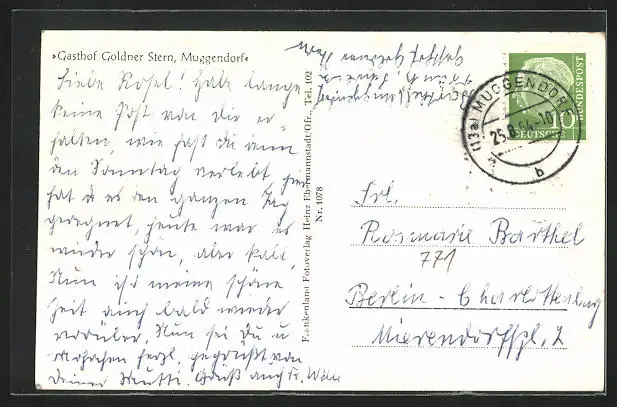 »Gasthof Goldner Stern, Muggendorf«
Liebe Rosel! Habe lange
keine Post von dir er-
halten, wie hast du denn
den Sonntag verlebt, hier
hat es den ganzen Tag
geregnet, heute war es
wieder schön, aber kalt,
Nun ist meine schöne
Zeit auch bald wieder
vorüber. Nun sei du u
herzl. gegrüßt von
deiner Mutti. Gruß auch Fr.
Frankenland Fotoverlag Heinz Ebermannstadt/Ofr., Tel. 102
Nr. 4078
(13a) MUGGENDORF
25.8.54-10
b
10
DEUTSCHE
BUNDESPOST
Frl.
Rosmarie Barthel
771
Berlin-Charlottenburg
Mierendorffpl. 2